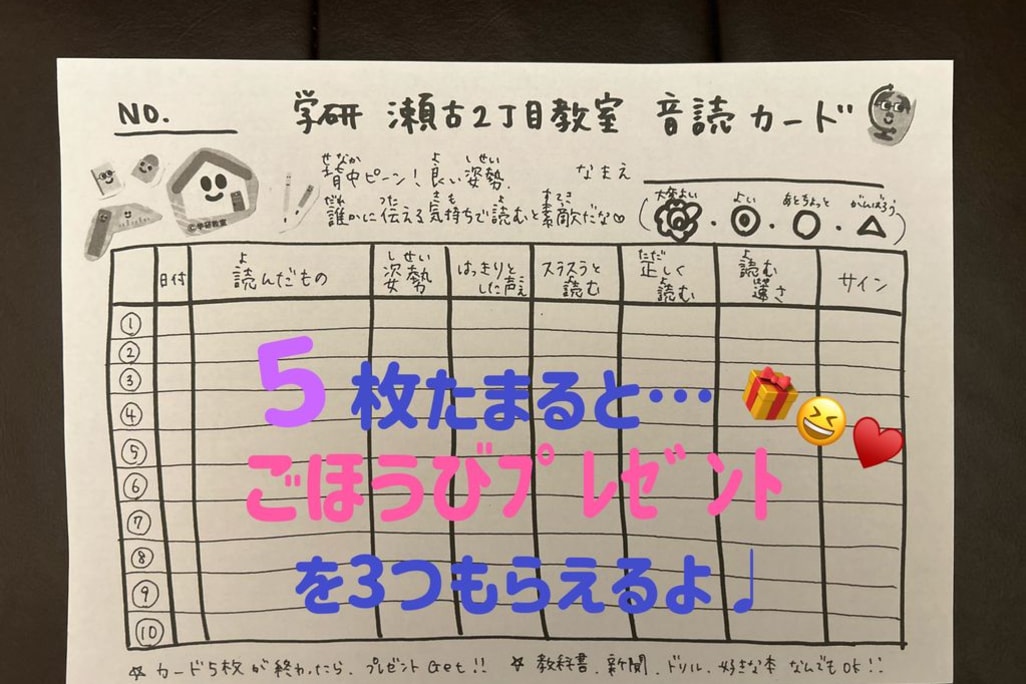 NO. 学研 瀬古2丁目教室 音読カード
せなか よ しせい
背中ピーン！良い姿勢． なまえ
だれ つた きも よ すてき
誰かに伝える気持ちで読むと素敵だな♡
大変よい よい あとちょっと がんばろう
(◎・◎・○・△)
©学研教室
日付 読んだもの 姿勢 はっきりとした声 スラスラと読む 正しく読む 読む速さ サイン
①
②
③
④
⑤
⑥
⑦
⑧
⑨
⑩
5枚たまると…
ごほうびプレゼント
を3つもらえるよ♩
☆ カード5枚が終わったら、プレゼントGet!! ☆ 教科書．新聞．ドリル．好きな本 なんでもOK!!